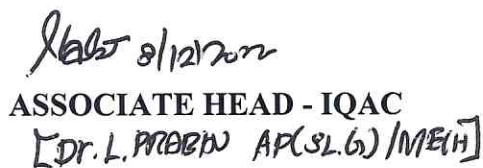 8/12/2022
ASSOCIATE HEAD - IQAC
[Dr. L. PRABIN AP(SL.G)/MECH]